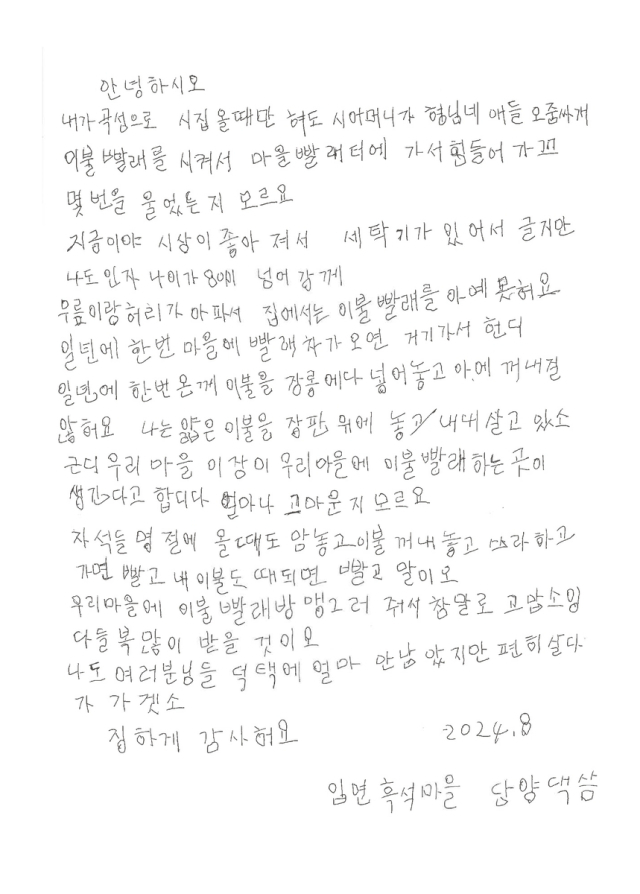 안녕하시오
내가 곡성으로 시집 올때만 혀도 시어머니가 형님네 애들 오줌싸게
이불 빨래를 시켜서 마을 빨래터에 가서 힘들어 가꼬
몇번을 울었는지 모르요
지금이야 시상이 좋아져서 세탁기가 있어서 글지만
나도 인자 나이가 80이 넘어강께
무릎이랑 허리가 아파서 집에서는 이불빨래를 아예 못혀요
일년에 한번 마을에 빨래차가 오면 거기가서 헌디
일년에 한번온께 이불을 장롱에다 넣어놓고 아에 꺼내질
않혀요 나는 얇은 이불을 장판 위에 놓고 내대 살고 있소
근디 우리 마을 이장이 우리마을에 이불빨래하는 곳이
생긴다고 합디다 얼마나 고마운지 모르요
자석들 명절에 올때도 암놓고 이불 꺼내놓고 쓰라하고
가면 빨고 내 이불도 때되면 빨고 말이오
우리마을에 이불 빨래방 맹그러 줘서 참말로 고맙소잉
다들 복 많이 받을 것이오
나도 여러분님들 덕택에 얼마 안남았지만 편히살다
가 가겟소
집하게 감사혀요
2024.8
입면 흑석마을 담양댁 씀